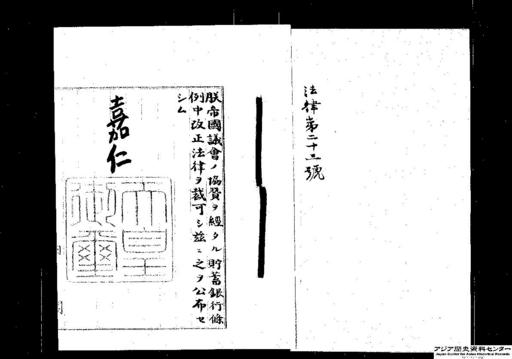 法律第二十三號
朕帝國議會ノ協賛ヲ經タル貯蓄銀行條
例中改正法律ヲ裁可シ茲ニ之ヲ公布セ
シム
嘉仁
天皇
御璽
アジア歴史資料センター
Japan Center for Asian Historical Records